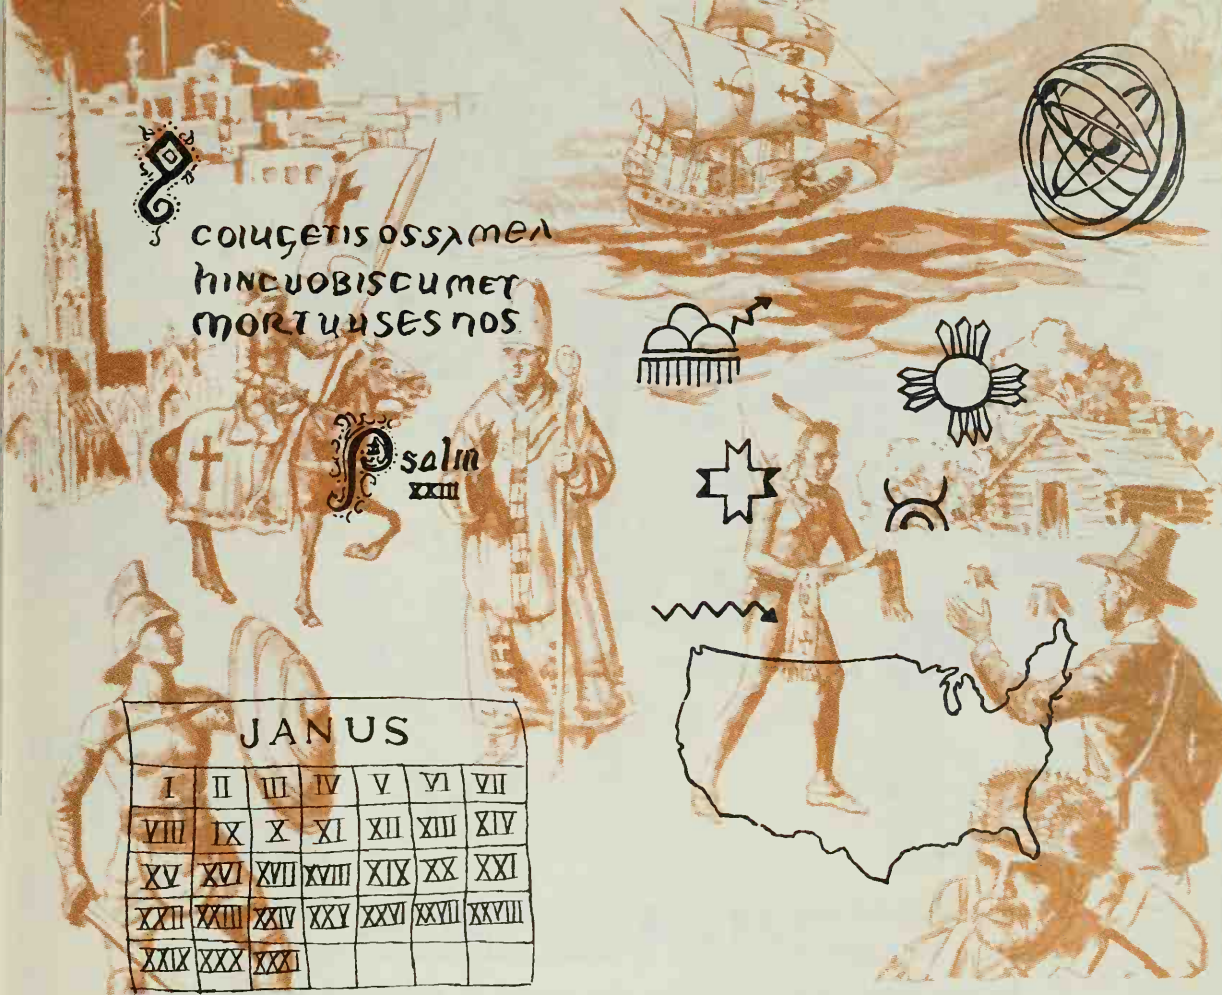 COIUGETIS OSSAMEA
hINCUOBISCUMET
MORTUUSES NOS
Psalm
XXIII
JANUS
I II III IV V VI VII
VIII IX X XI XII XIII XIV
XV XVI XVII XVIII XIX XX XXI
XXII XXIII XXIV XXV XXVI XXVII XXVIII
XXIX XXX XXXI